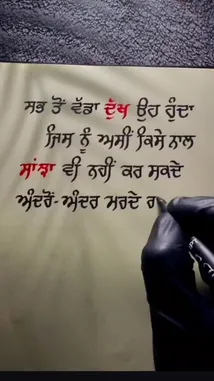 ਸਭ ਤੋਂ ਵੱਡਾ ਦੁੱਖ ਉਹ ਹੁੰਦਾ
ਜਿਸ ਨੂੰ ਅਸੀਂ ਕਿਸੇ ਨਾਲ
ਸਾਂਝਾ ਵੀ ਨਹੀਂ ਕਰ ਸਕਦੇ
ਅੰਦਰੋਂ-ਅੰਦਰ ਮਰਦੇ ਰ